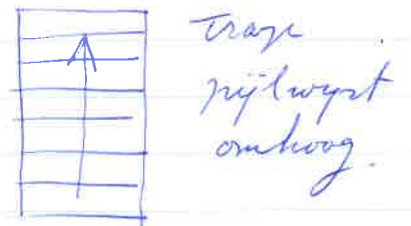 trap
pijl wijst
omhoog.